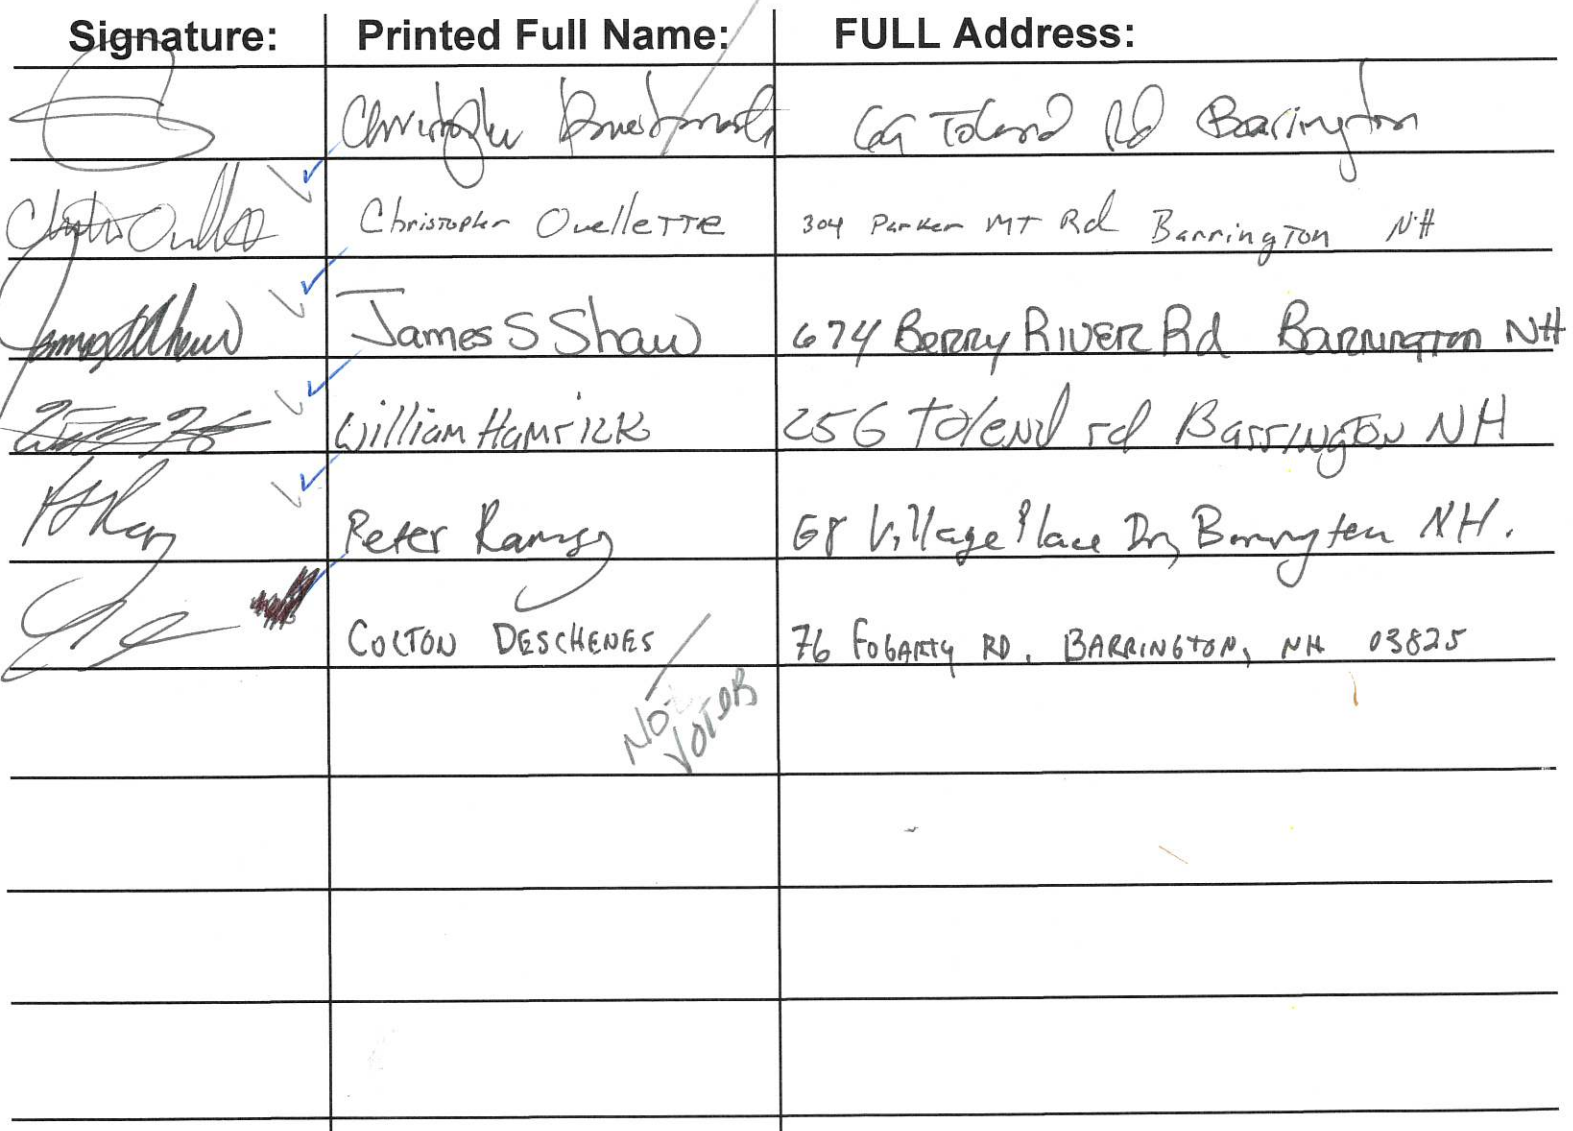 Signature: Printed Full Name: FULL Address:
Christopher Toland Rd Barrington
Christopher Ouellette 304 Parker MT Rd Barrington NH
James S Shaw 674 Berry River Rd Barrington NH
William Hamrick 256 Tolend rd Barrington NH
Peter Ramsey 68 Village Place Dr, Barrington NH.
COLTON DESCHENES 76 FOGARTY RD, BARRINGTON, NH 03825
NOT
VOTER